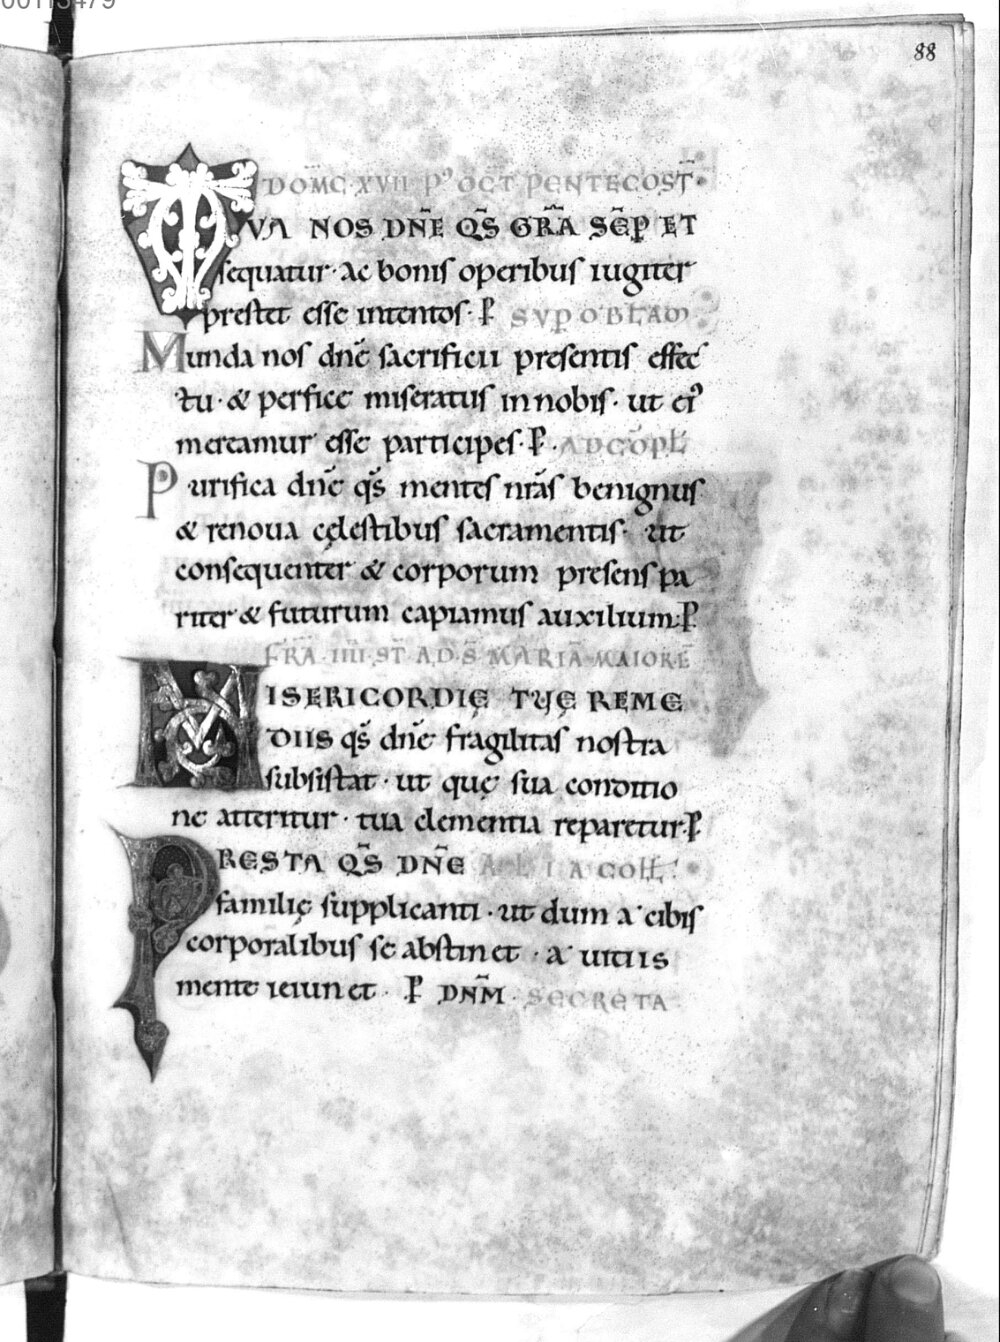 00113479
88
DOM̄C·XVII·P᾽ OCT̄ PENTECOST̄·
TVA NOS DN̄E QS̄ GRĀ SĒP ET
sequatur· ac bonis operibus iugiter
prestet esse intentos· P̄ SVP OBLAT̄
Munda nos dn̄e sacrificii presentis effec
tu· & perfice miseratus in nobis· ut ei᾽
mereamur esse participes· P̄· AD COPL̄
Purifica dn̄e qs̄ mentes nr̄as benignus
& renoua cęlestibus sacramentis· ut
consequenter & corporum presens pa
riter & futurum capiamus auxilium· P̄
FRĀ·IIII·ST̄·AD·S̄·MARIĀ·MAIORĒ
MISERICORDIĘ TUĘ REME
DIIS qs̄ dn̄e fragilitas nostra
subsistat· ut quę sua conditio
ne atteritur· tua clementia reparetur· P̄
PRESTA QS̄ DN̄E ALIA COLL̄·
familię supplicanti· ut dum a cibis
corporalibus se abstinet· a uitiis
mente ieiunet· P̄ DN̄M· SECRETA